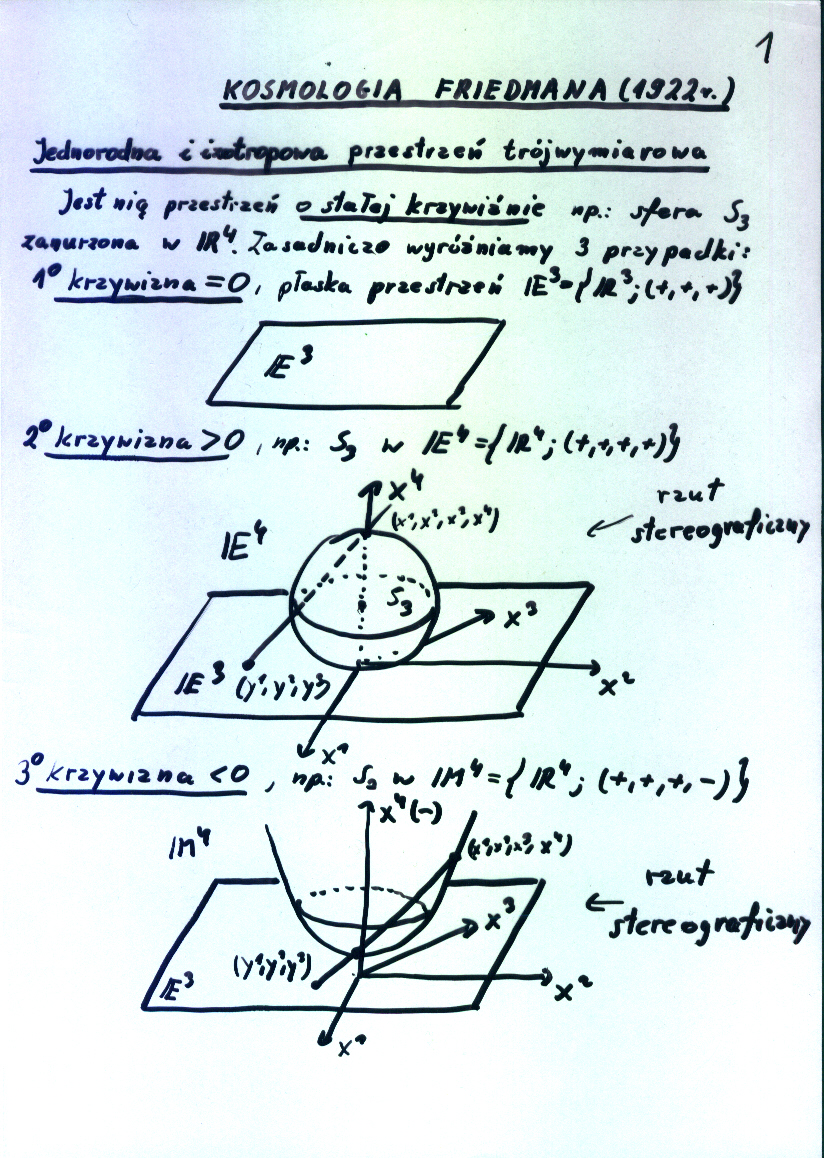 1
KOSMOLOGIA FRIEDMANA (1922r.)
Jednorodna i izotropowa przestrzeń trójwymiarowa
Jest nią przestrzeń o stałej krzywiźnie np.: sfera S₃
zanurzona w IR⁴. Zasadniczo wyróżniamy 3 przypadki:
1° krzywizna = 0, płaska przestrzeń IE³={IR³;(+,+,+)}
IE³
2° krzywizna >0, np.: S₃ w IE⁴={IR⁴;(+,+,+,+)}
x⁴
(x¹,x²,x³,x⁴)
rzut
stereograficzny
IE⁴
S₃
x³
IE³ (y¹,y²,y³)
x²
x¹
3° krzywizna <0, np.: S₃ w IM⁴={IR⁴; (+,+,+,-)}
x⁴(-)
IM⁴
(x¹,x²,x³,x⁴)
rzut
stereograficzny
x³
(y¹,y²,y³)
IE³
x²
x¹